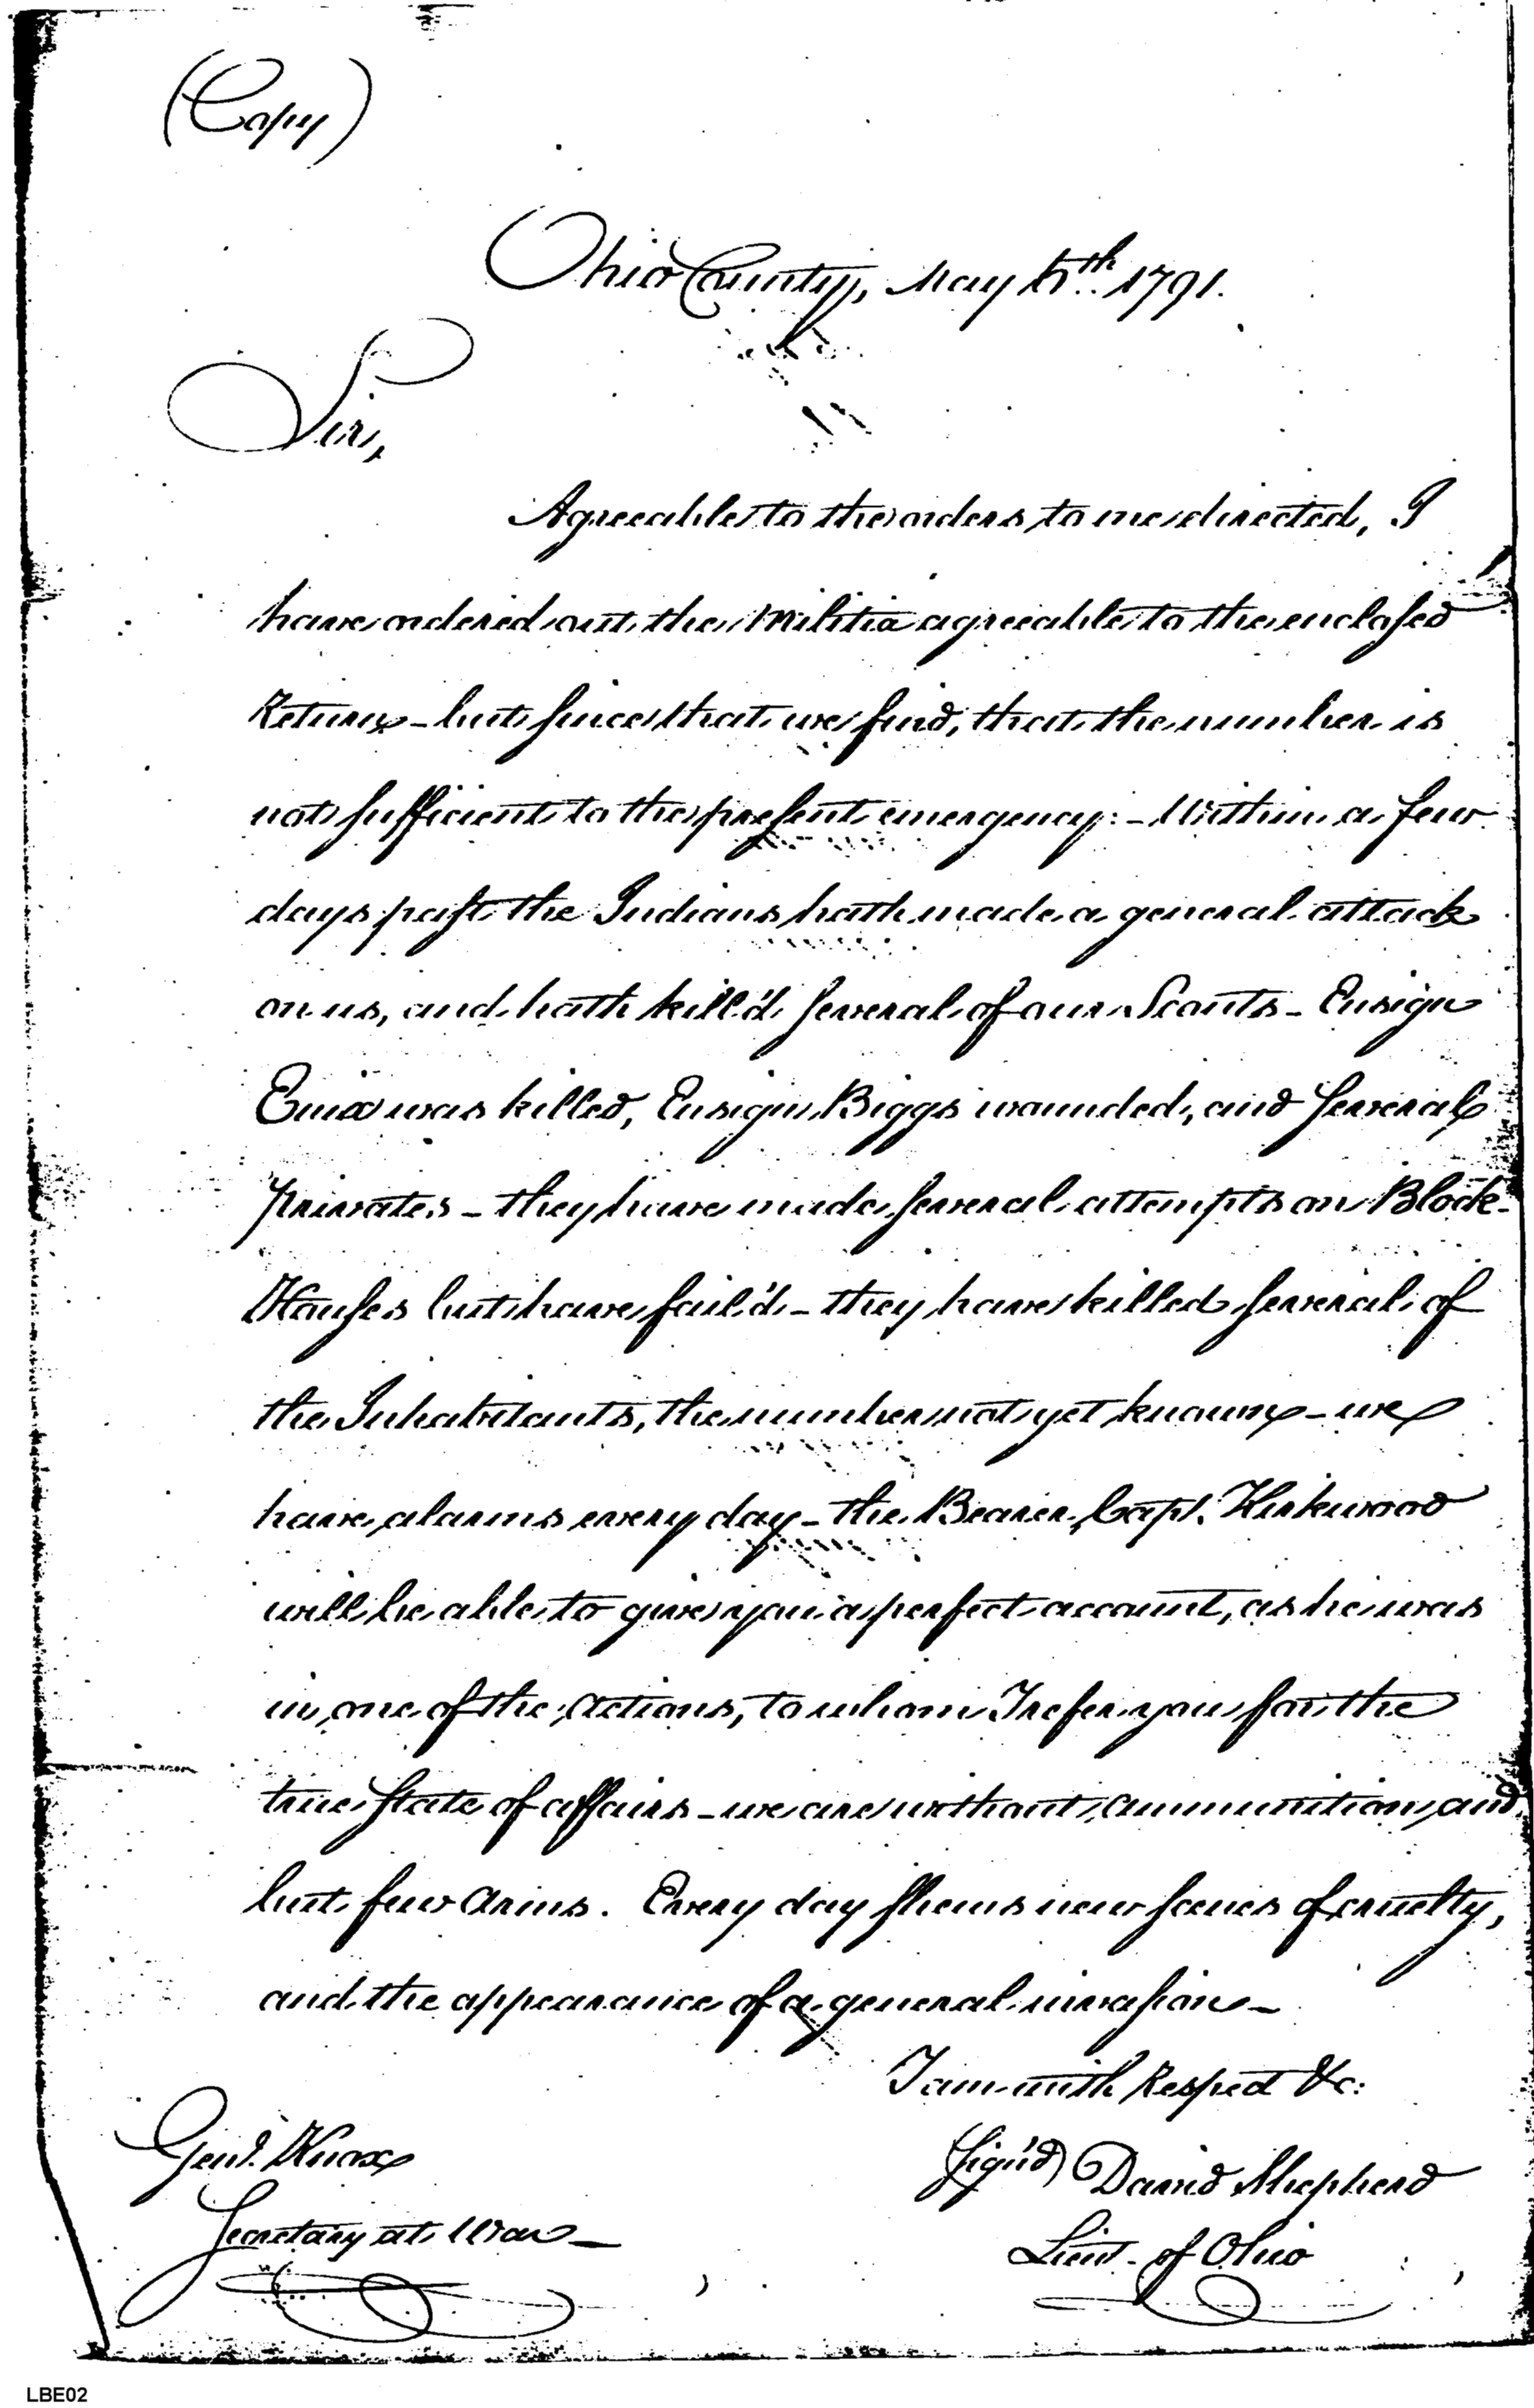 (Copy)
Ohio County, May 5th. 1791.
Sir,
Agreeable to the orders to me directed, I
have ordered out the Militia agreeable to the enclosed
Return - but since that we find, that the number is
not sufficient to the present emergency: - Within a few
days past the Indians hath made a general attack
on us, and hath kill'd several of our Scouts - Ensign
Enix was killed, Ensign Biggs wounded, and several
privates - they have made several attempts on Block-
Houses but have fail'd - they have killed several of
the Inhabitants, the number not yet known - we
have alarms every day - the Bearer, Capt. Kirkwood
will be able to give you a perfect account, as he was
in one of the actions, to whom I refer you for the
true state of affairs - we are without ammunition, and
but few Arms. Every day shews new scenes of cruelty,
and the appearance of a general invasion -
I am with Respect &c:
(sign'd) David Shepherd
Lieut. of Ohio
Genl. Knox
Secretary at War -
LBE02